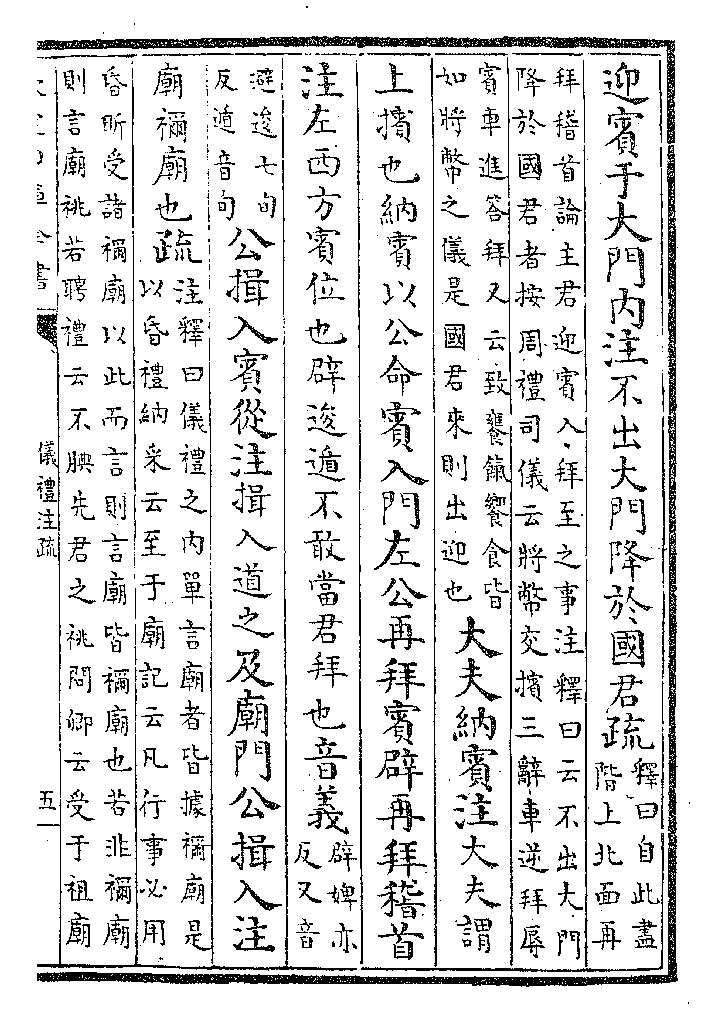 迎賓于大門内注不出大門降於國君疏釋曰自此盡
階上北面再
拜稽首論主君迎賓入拜至之事注釋曰云不出大門
降於國君者按周禮司儀云將幣交擯三辭車逆拜辱
賓車進答拜又云致饔餼饗食皆
如將幣之儀是國君來則出迎也大夫納賓注大夫謂
上擯也納賓以公命賓入門左公再拜賓辟再拜稽首
注左西方賓位也辟逡遁不敢當君拜也音義辟婢亦
反又音
避逡七旬
反遁音旬公揖入賓從注揖入道之及廟門公揖入注
廟禰廟也疏注釋曰儀禮之内單言廟者皆據禰廟是
以昏禮納采云至于廟記云凡行事必用
昏昕受諸禰廟以此而言則言廟皆禰廟也若非禰廟
則言廟祧若聘禮云不腆先君之祧問卿云受于祖廟
儀禮注疏
五一